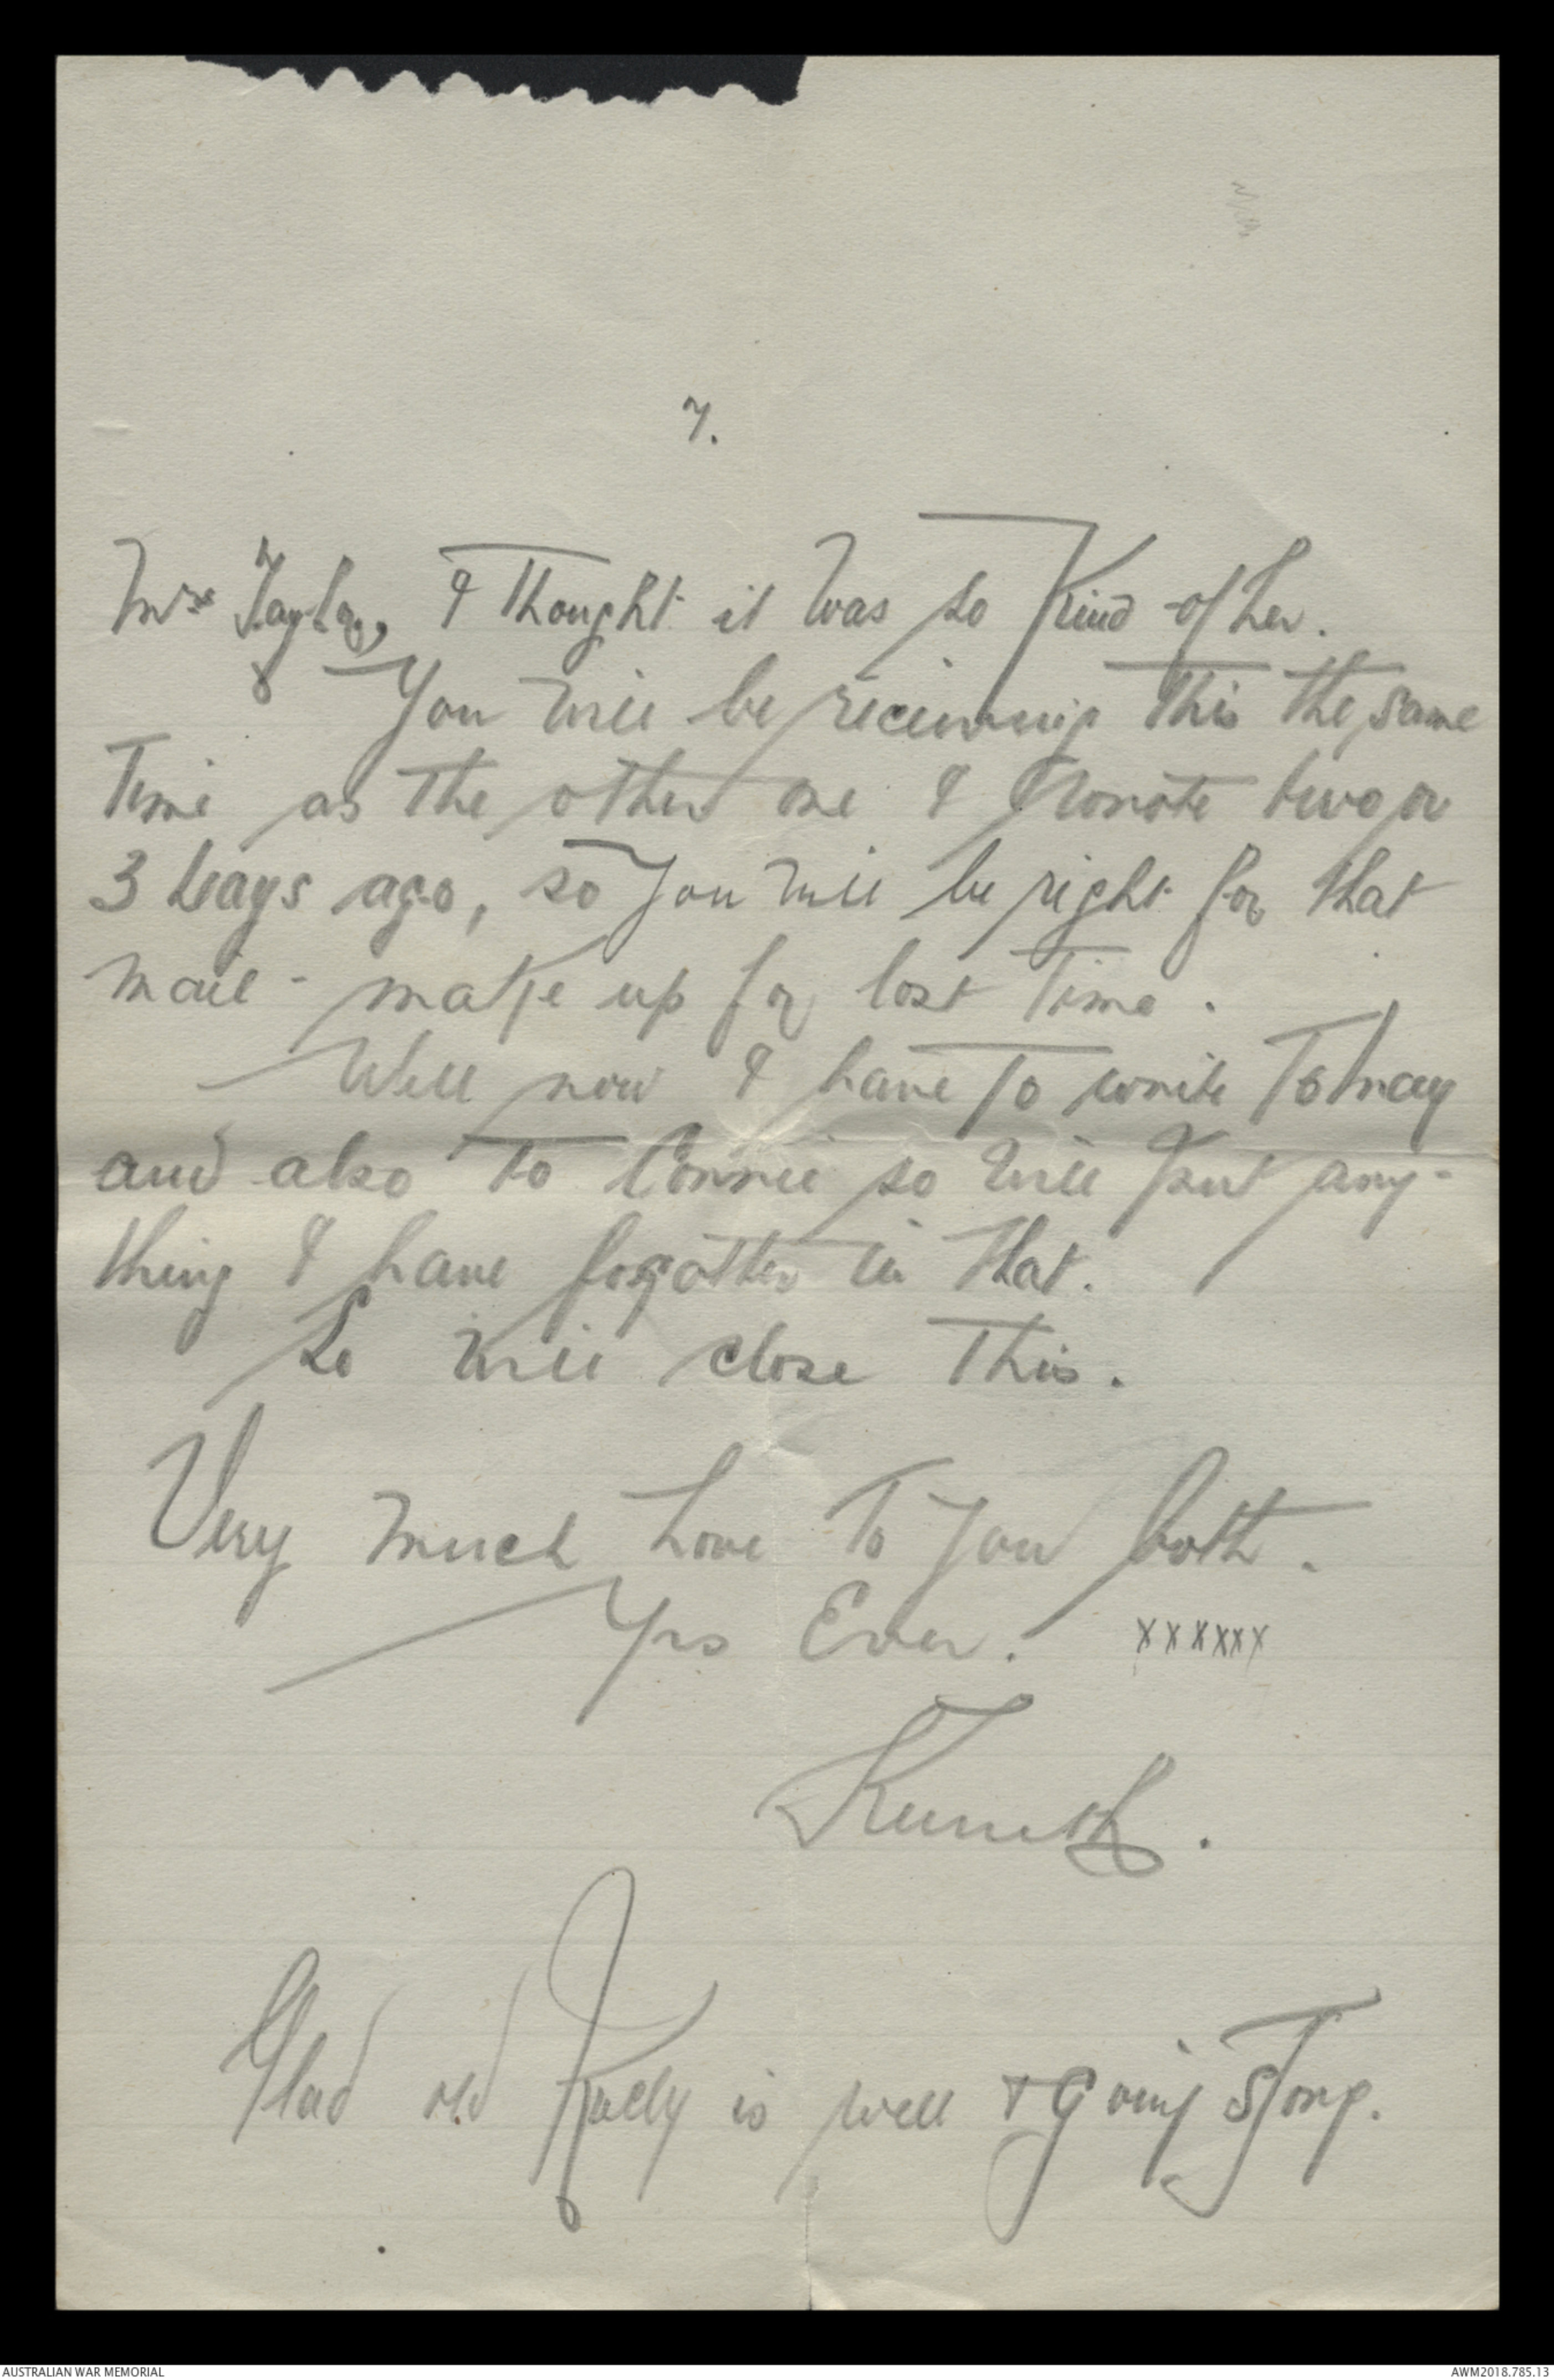 7.
Mrs Taylor, I thought it was so kind of her.
You will be receiving this the same
time as the other one I wrote two or
3 days ago, so you will be right for that
mail - make up for lost time.
Well now I have to write to May
and also to Connie so will put any-
thing I have forgotten in that.
So will close this.
Very much love to you both.
Yrs Ever. xxxxxx
Kenneth.
Glad old is well & going strong.
AUSTRALIAN WAR MEMORIAL
AWM2018.785.13